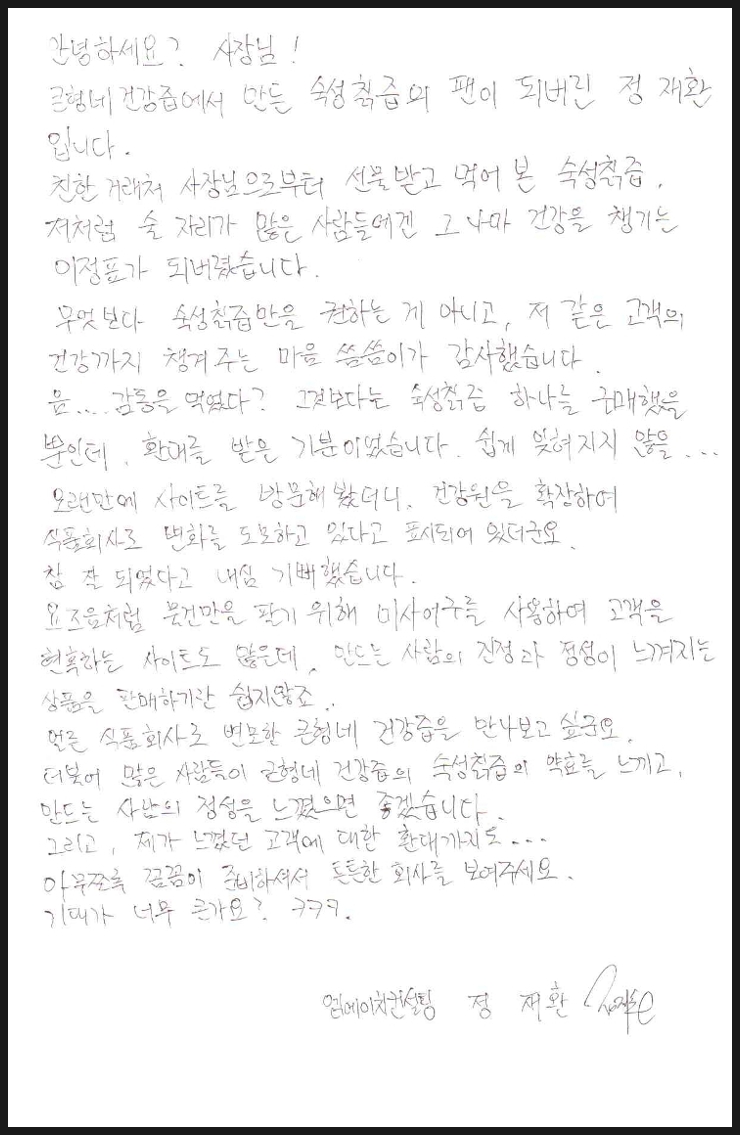 안녕하세요? 사장님!
근형네 건강즙에서 만든 숙성칡즙의 팬이 되버린 정 재환
입니다.
친한 거래처 사장님으로부터 선물받고 먹어 본 숙성칡즙.
저처럼 술 자리가 많은 사람들에겐 그나마 건강을 챙기는
이정표가 되버렸습니다.
무엇보다 숙성칡즙만을 권하는 게 아니고, 저 같은 고객의
건강까지 챙겨주는 마음 씀씀이가 감사했습니다.
음.... 감동을 먹었다? 그것보다는 숙성칡즙 하나를 구매했을
뿐인데, 환대를 받은 기분이었습니다. 쉽게 잊혀지지 않을...
오랜만에 사이트를 방문해 봤더니, 건강원을 확장하여
식품회사로 변화를 도모하고 있다고 표시되어 있더군요.
참 잘 되었다고 내심 기뻐했습니다.
요즈음처럼 물건만을 팔기 위해 미사여구를 사용하여 고객을
현혹하는 사이트도 많은데, 만드는 사람의 진정과 정성이 느껴지는
상품을 판매하기란 쉽지않죠..
얼른 식품회사로 변모한 근형네 건강즙을 만나보고 싶군요.
더불어 많은 사람들이 근형네 건강즙의 숙성칡즙의 약효를 느끼고,
만드는 사람의 정성을 느꼈으면 좋겠습니다.
그리고, 제가 느꼈던 고객에 대한 환대까지도...
아무쪼록 꼼꼼이 준비하셔서 든든한 회사를 보여주세요.
기대가 너무 큰가요? ㅋㅋㅋ.
엠에이치컨설팅 정 재환